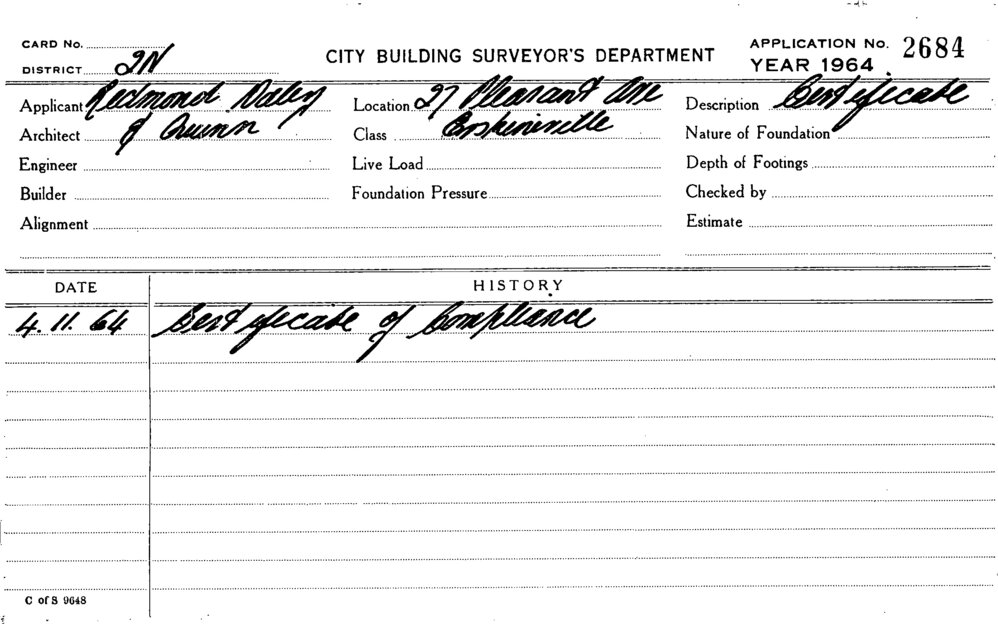 CARD No.
CITY BUILDING SURVEYOR'S DEPARTMENT
APPLICATION No. 2684
DISTRICT 2N
YEAR 1964
Applicant Redmond Daley Location 27 Pleasant Ave Description Certificate
Architect & Quinn Class Erskineville Nature of Foundation
Engineer Live Load Depth of Footings
Builder Foundation Pressure Checked by
Alignment Estimate
DATE HISTORY
4.11.64 Certificate of Compliance
C of S 9648